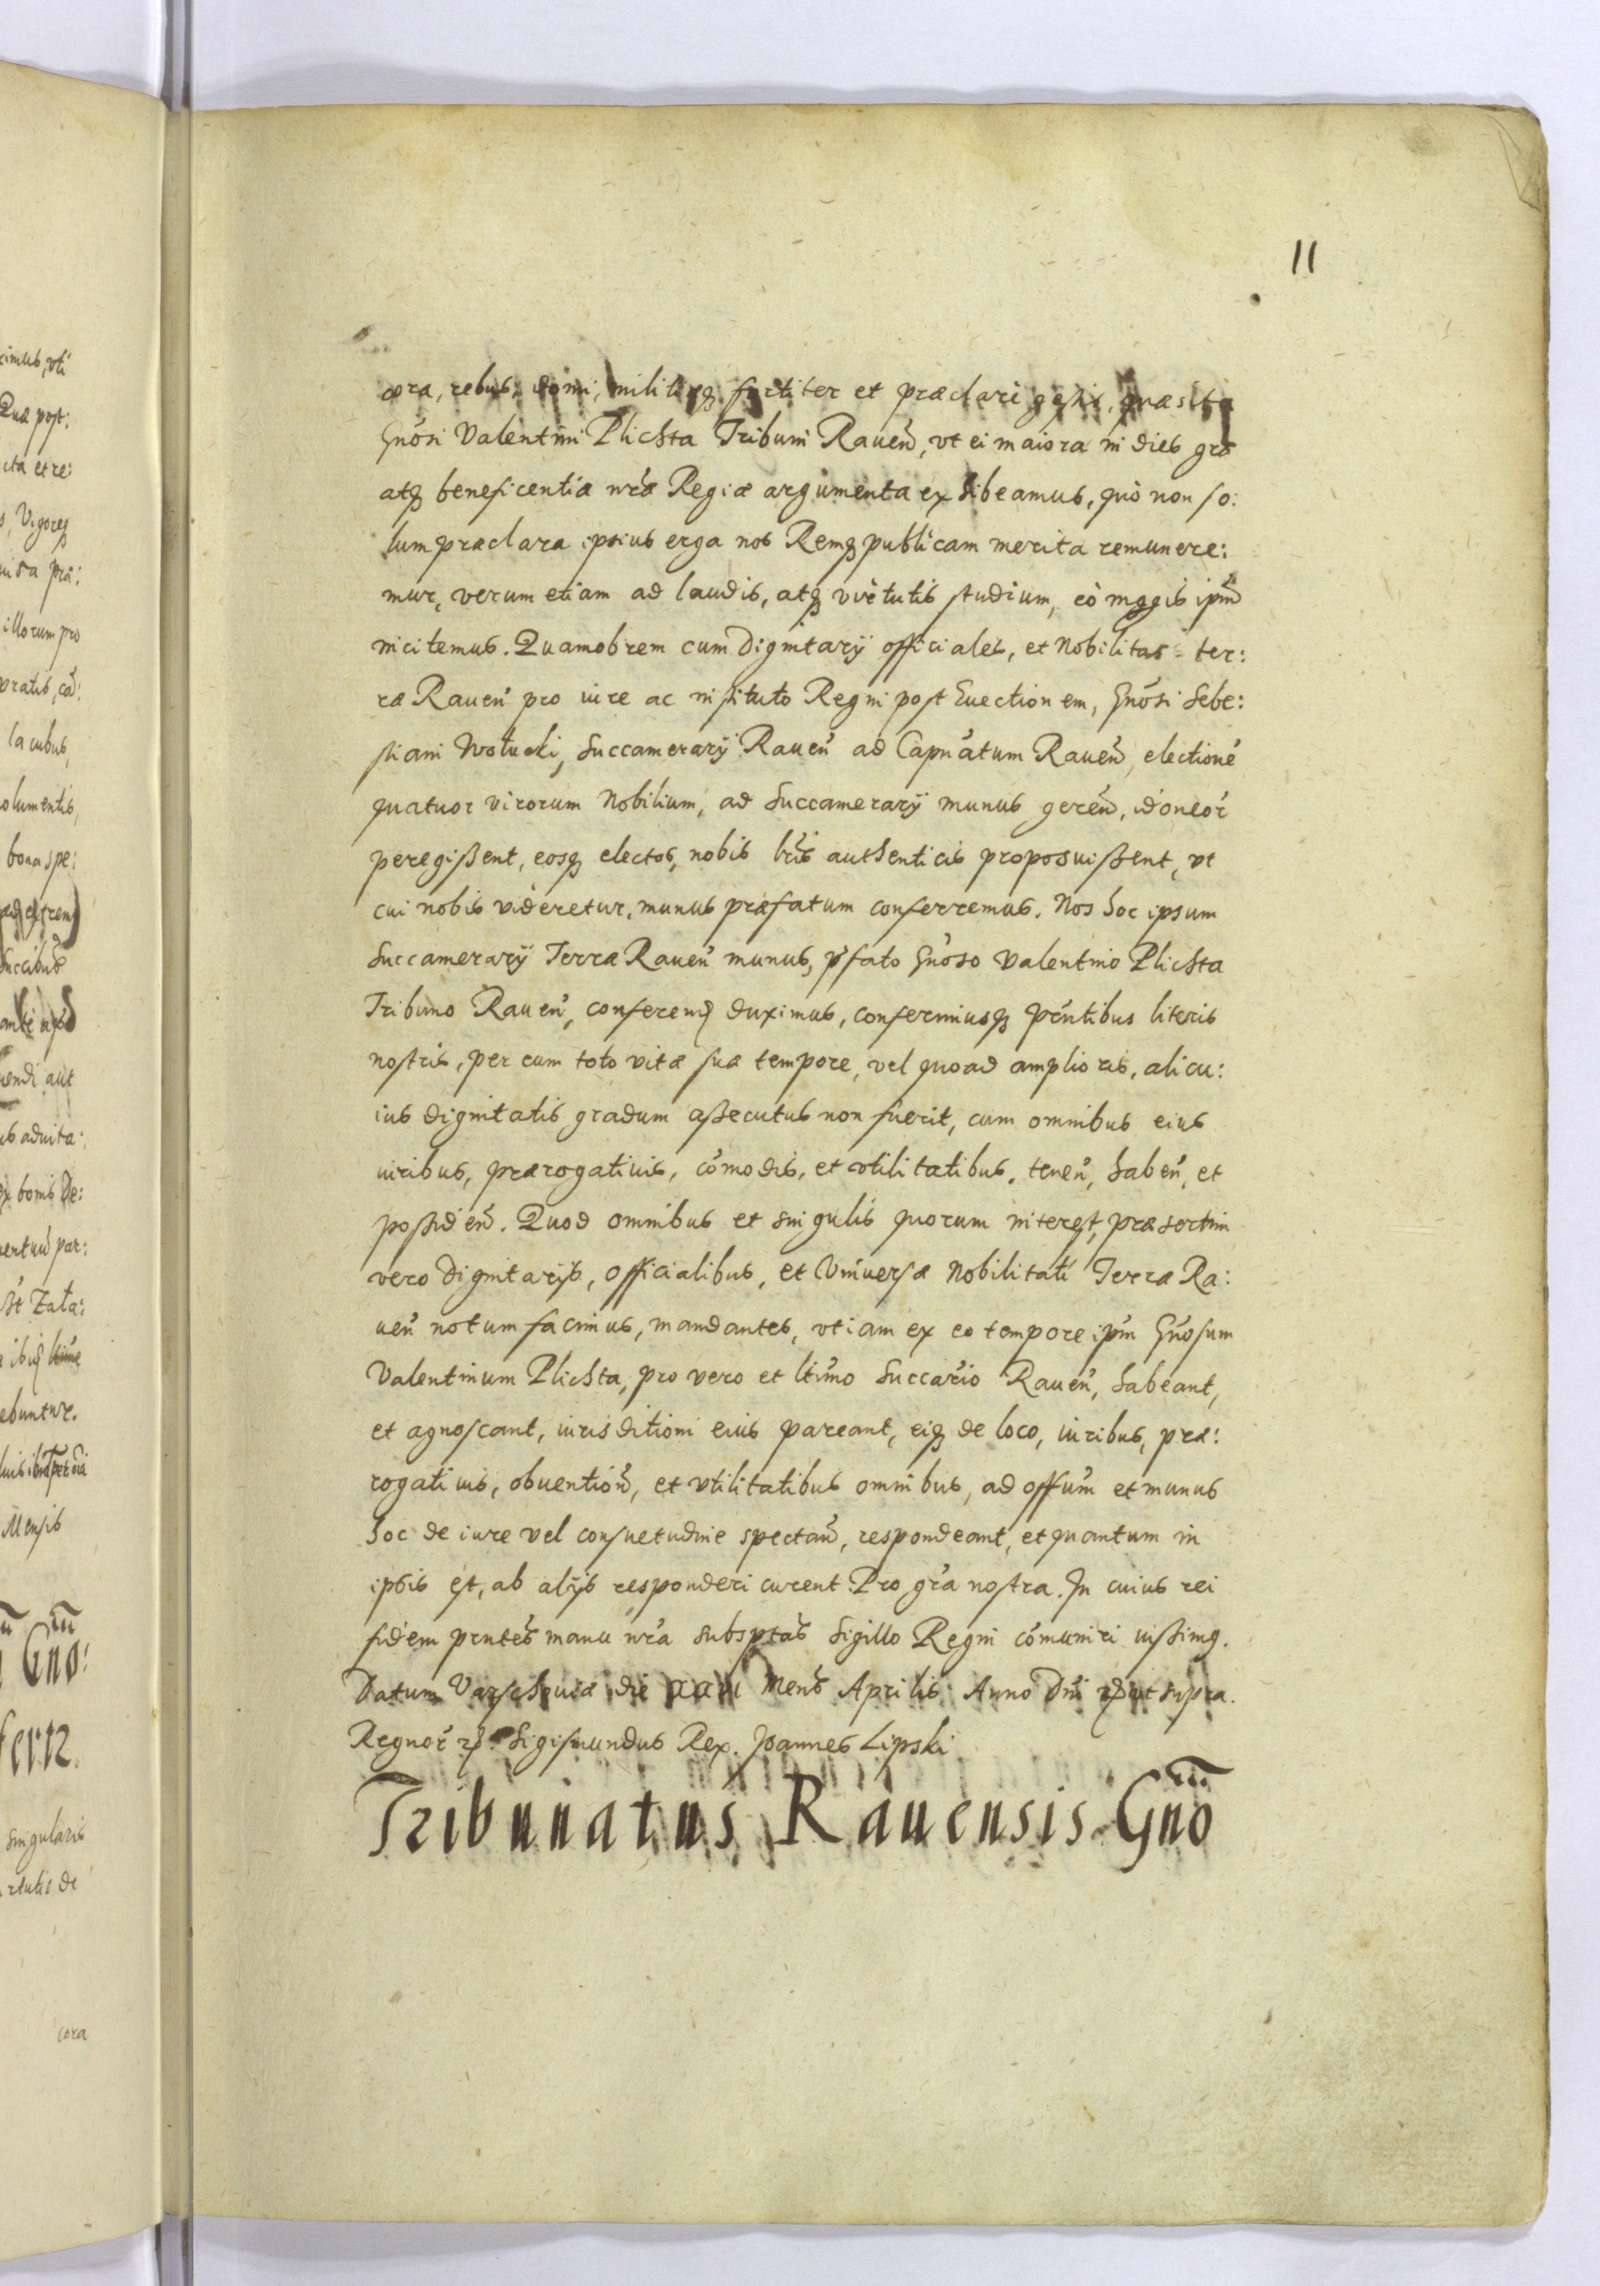 11
cora, rebus, domi, militiæq fortiter et præclarè gestis, quæsita
Gnōsi Valentini Plichta Tribuni Raueñ, vt ei maiora in dies grã
atq beneficentiæ nrẽ Regiæ argumenta exhibeamus, quò non so:
lum præclara ipsius erga nos Remq publicam merita remunere:
mur, verum etiam ad laudis, atq virtutis studium, eò maggis ipm̃
incitemus. Quamobrem cum Dignitarÿ officiales, et Nobilitas ter:
ræ Raueñ pro iure ac instituto Regni post Euectionem, Gnōsi Sebe:
stiani Wołucki, Succamerarÿ Raueñ ad Capnãtum Raueñ, electionẽ
quatuor virorum Nobilium, ad Succamerarÿ munus gereñ, idoneoȓ
peregißent, eosq electos, nobis lrĩs authenticis proposuißent, vt
cui nobis videretur, munus præfatum conferremus. Nos hoc ipsum
Succamerarÿ Terræ Raueñ munus, pfato Gnōso Valentino Plichta
Tribuno Raueñ, conferend duximus, conferimusq prñtibus literis
nostris, per eum toto vitæ suæ tempore, vel quoad amplioris, alicu:
ius dignitatis gradum aßecutus non fuerit, cum omnibus eius
iuribus, prærogatiuis, cõmodis, et vtilitatibus, teneñ, habeñ, et
poßideñ. Quod omnibus et singulis quorum interest, præsertim
vero Dignitarÿs, Officialibus, et Vniuersæ Nobilitati Terræ Ra:
ueñ notum facimus, mandantes, vt iam ex eo tempore ipm̃ Gnōsum
Valentinum Plichta, pro vero et ltimo Succario Raueñ, habeant,
et agnoscant, iurisditioni eius pareant, eiq de loco, iuribus, præ:
rogatiuis, obuentioñ, et vtilitatibus omnibus, ad offum̃ et munus
hoc de iure vel consuetudine spectañ, respondeant, et quantum in
ipsis est, ab alÿs responderi curent Pro grã nostra. In cuius rei
fidem prñtes manu nrã subsptas Sigillo Regni cõmuniri iußimq.
Datum Varschouiæ die Mens Aprilis Anno Dni ut supra.
Regnoȓ Sigismundus Rex. Joannes Lipski
Tribunatus Rauensis Gnō